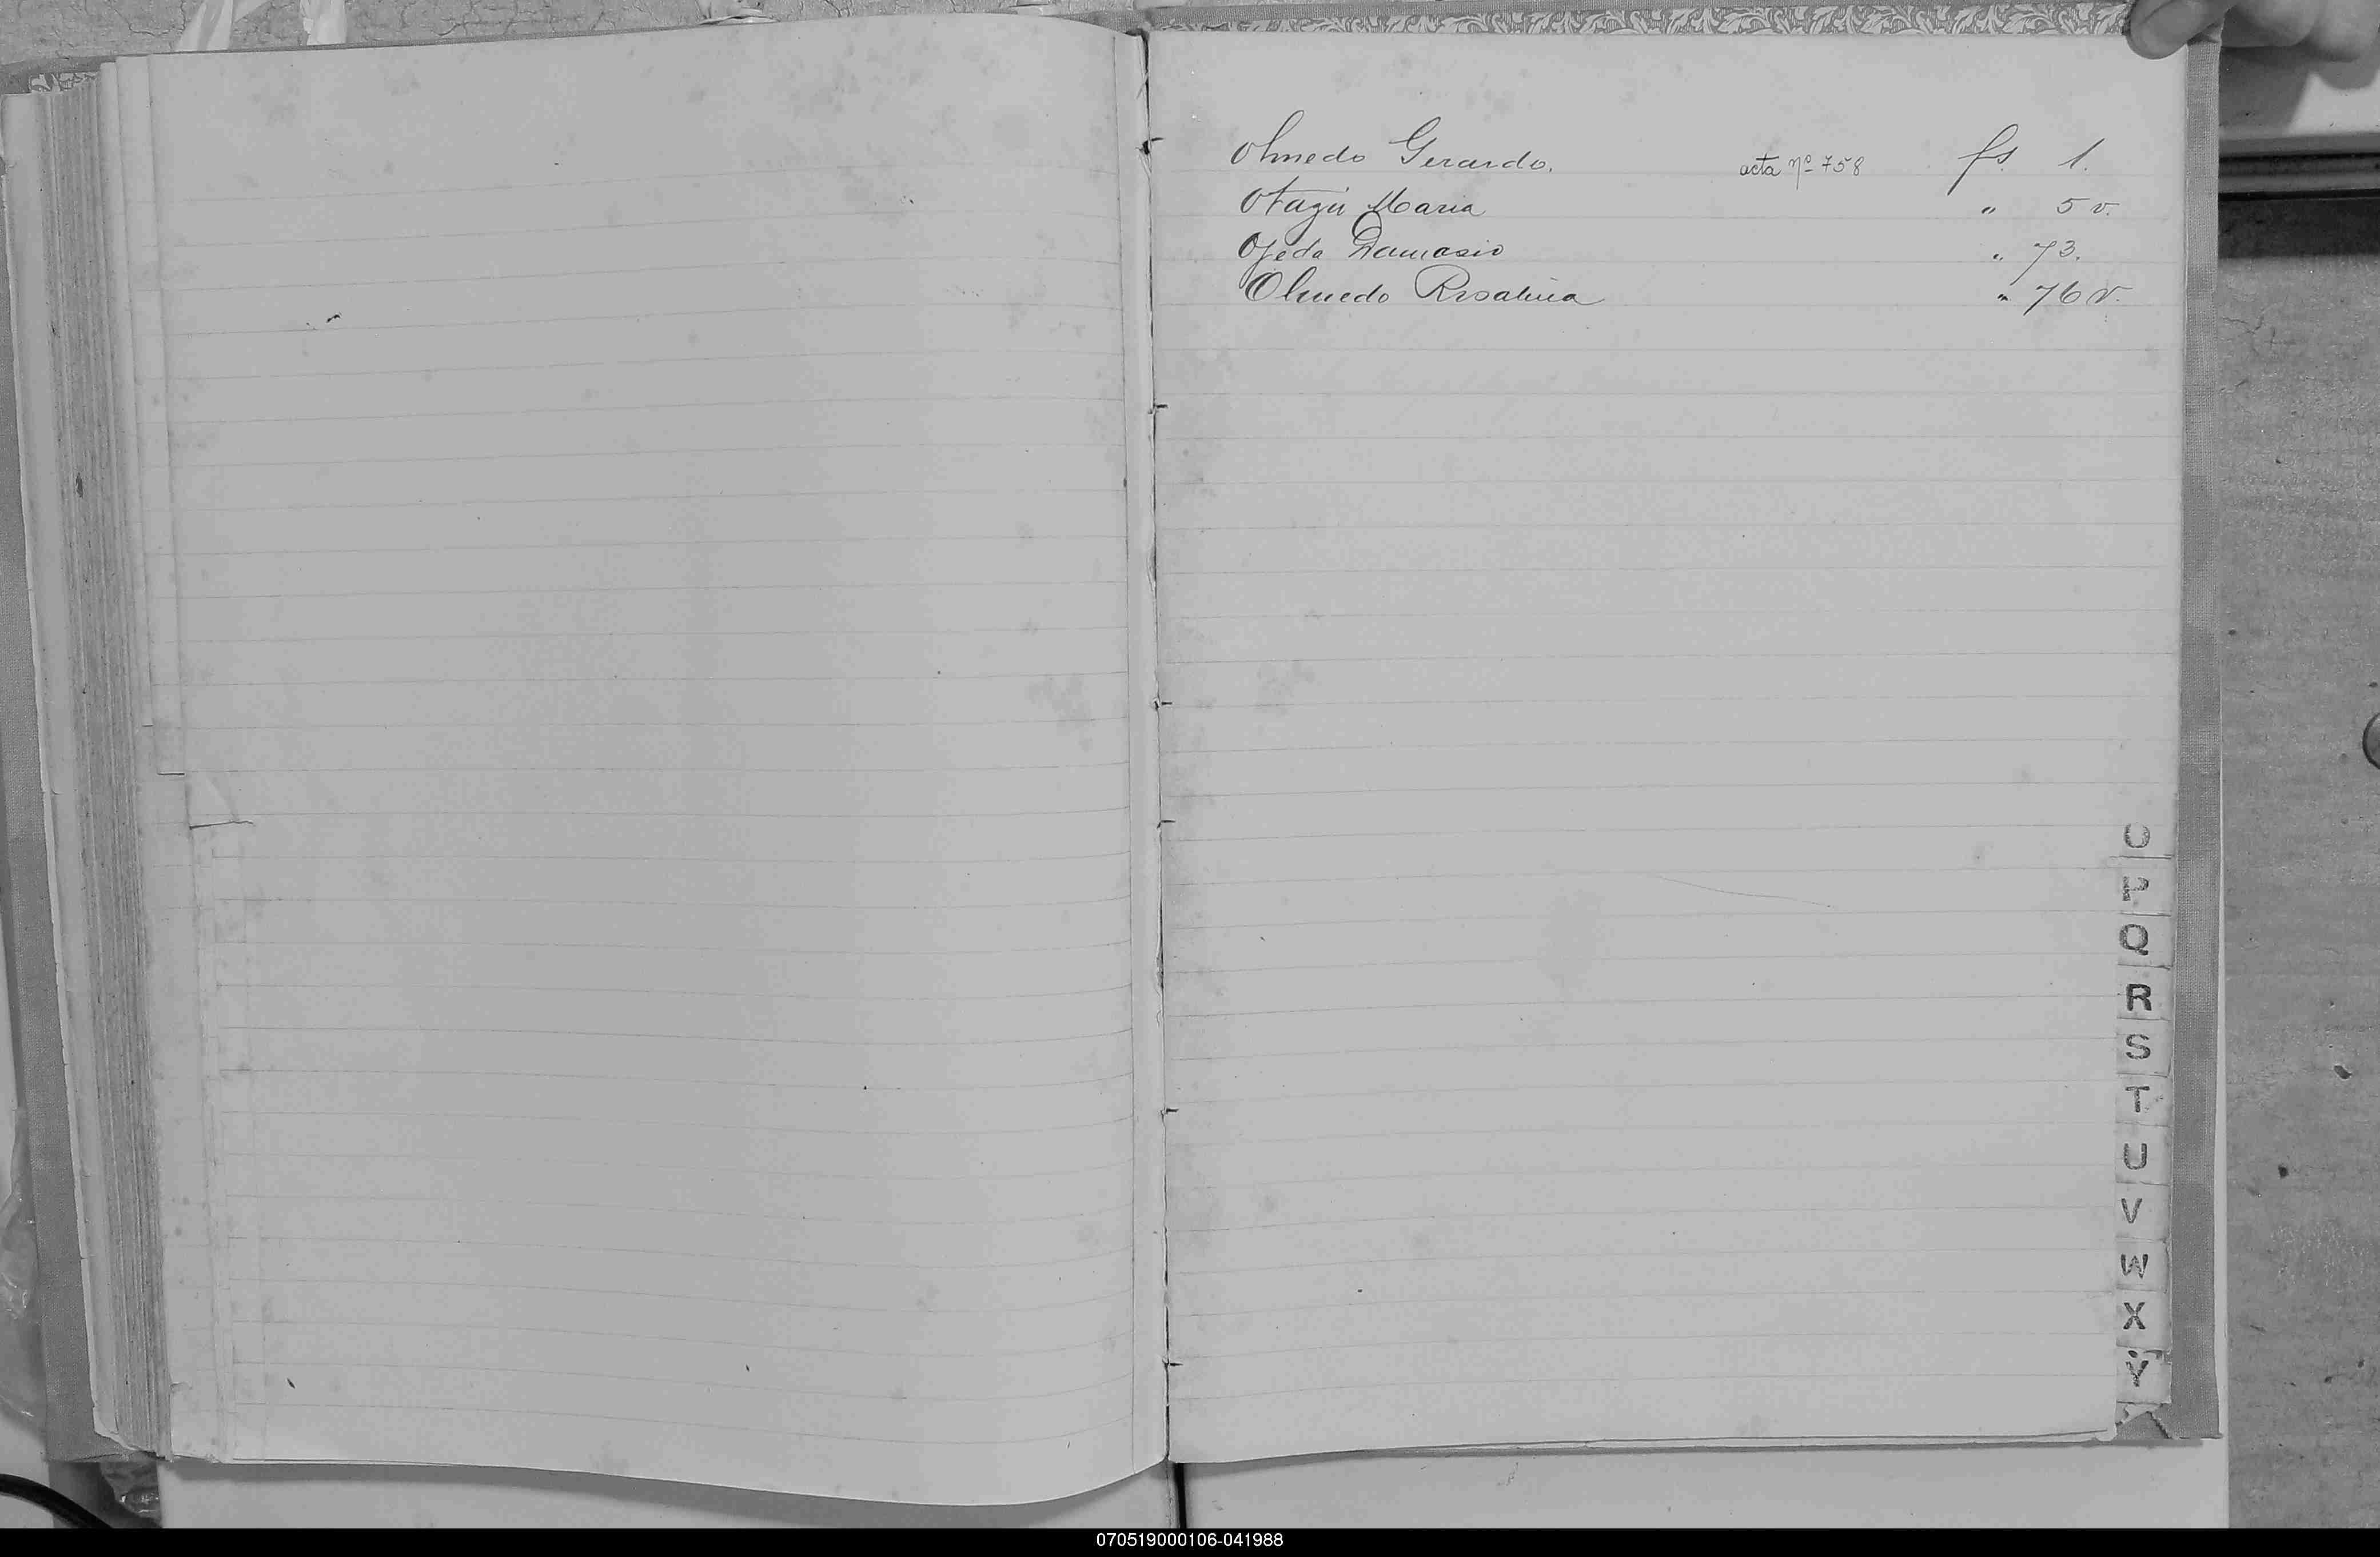 Olmedo Gerardo. acta nº 758 fs. 1.
Otazú Maria " 5 v.
Ojeda Damasio " 73.
Olmedo Rosalina " 76 v.
O
P
Q
R
S
T
U
V
W
X
Y
070519000106-041988